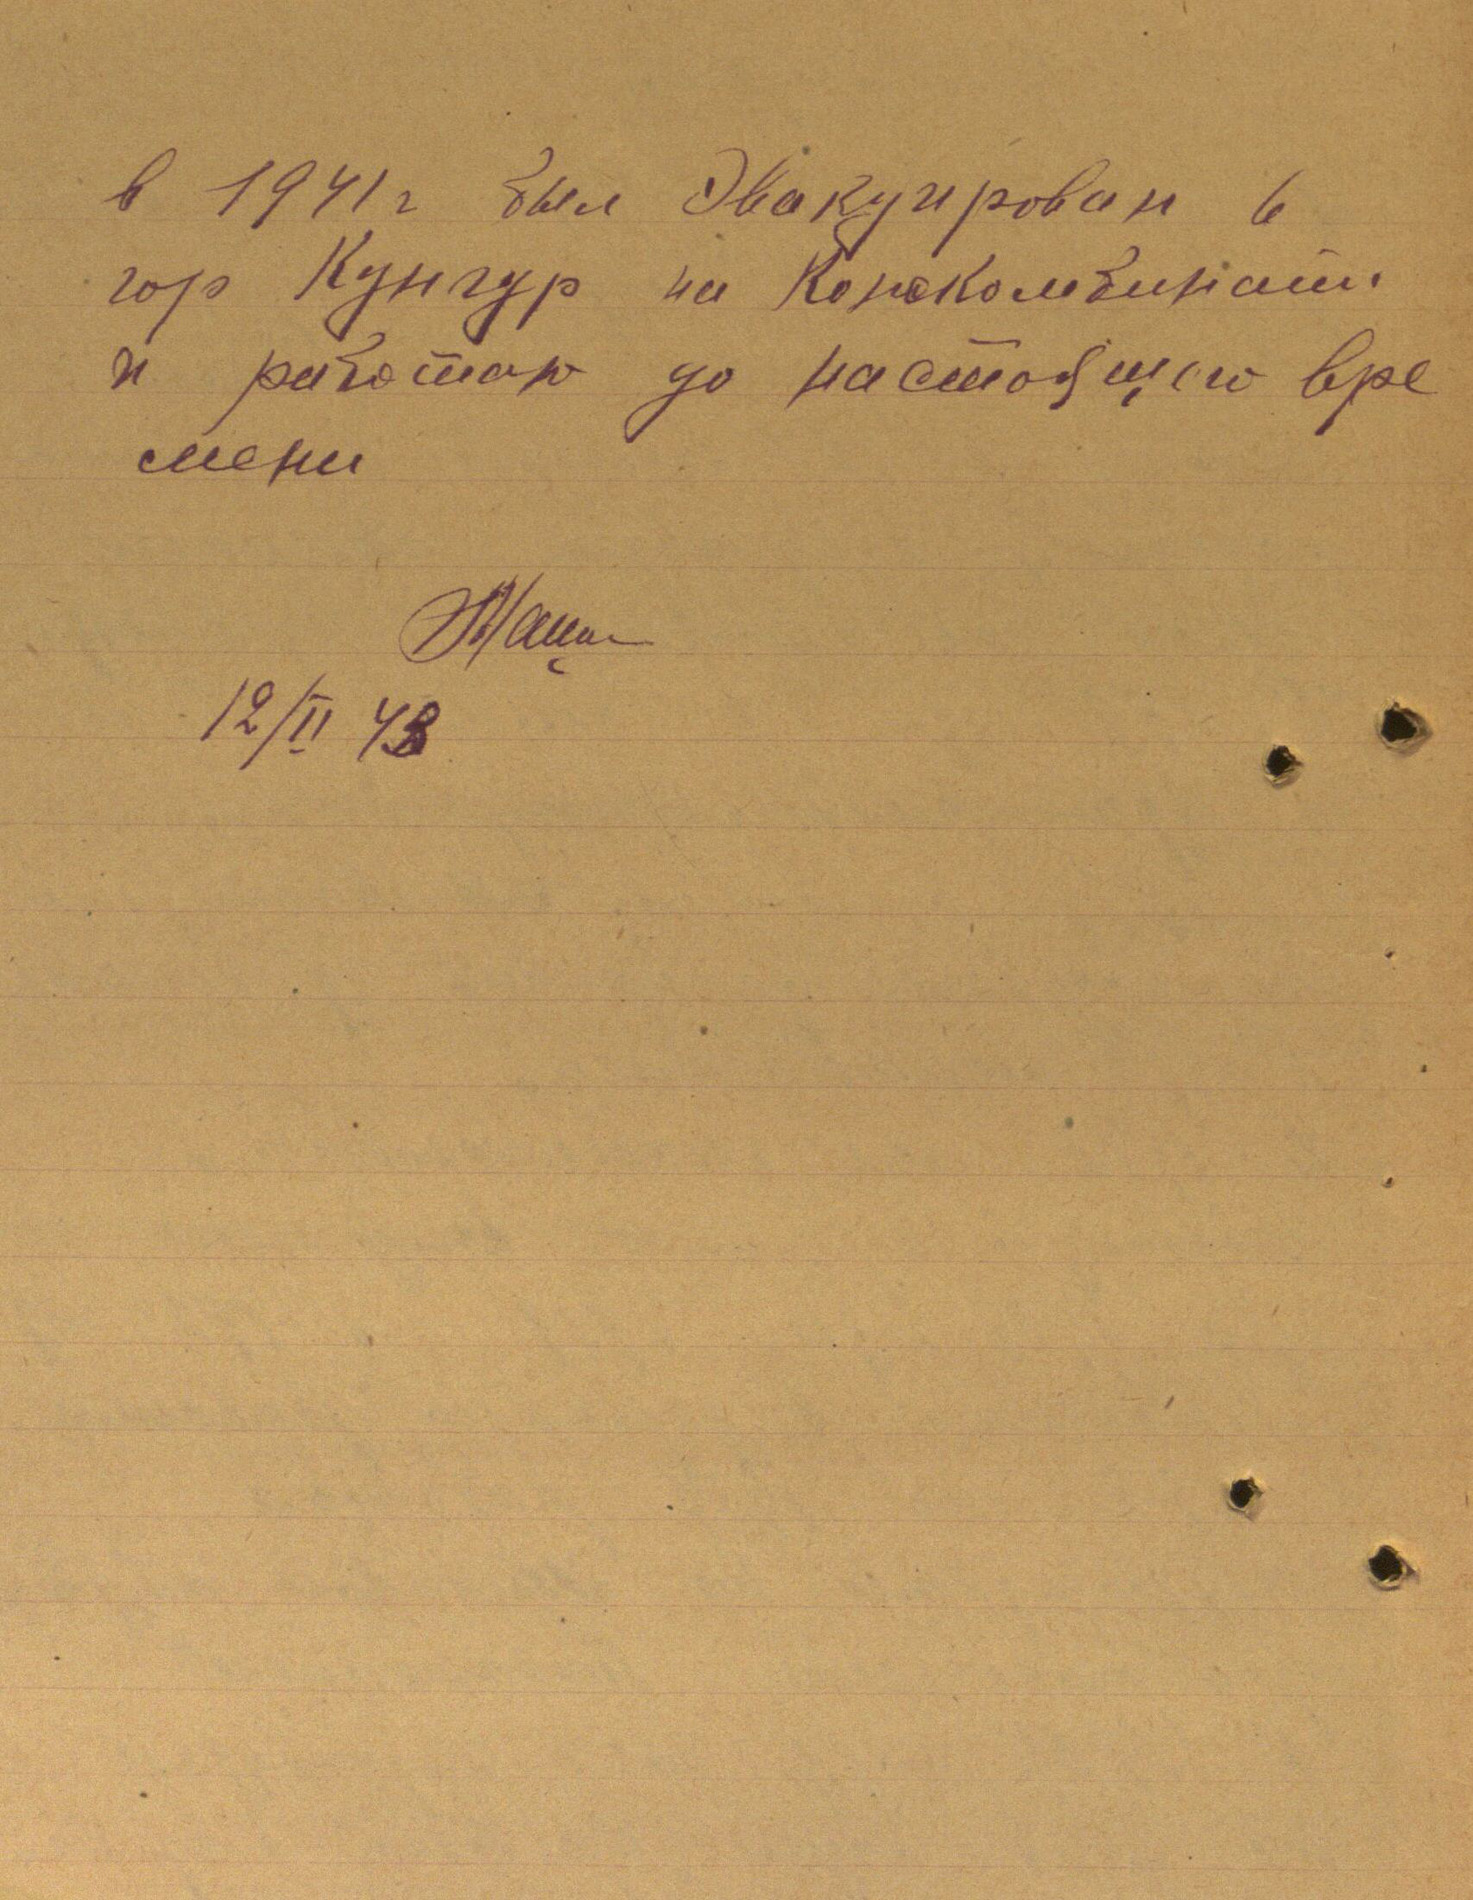 в 1941 г был Эвакуирован в
гор Кунгур на Кожкомбинат.
и работаю до настоящего вре
мени
12/II 43